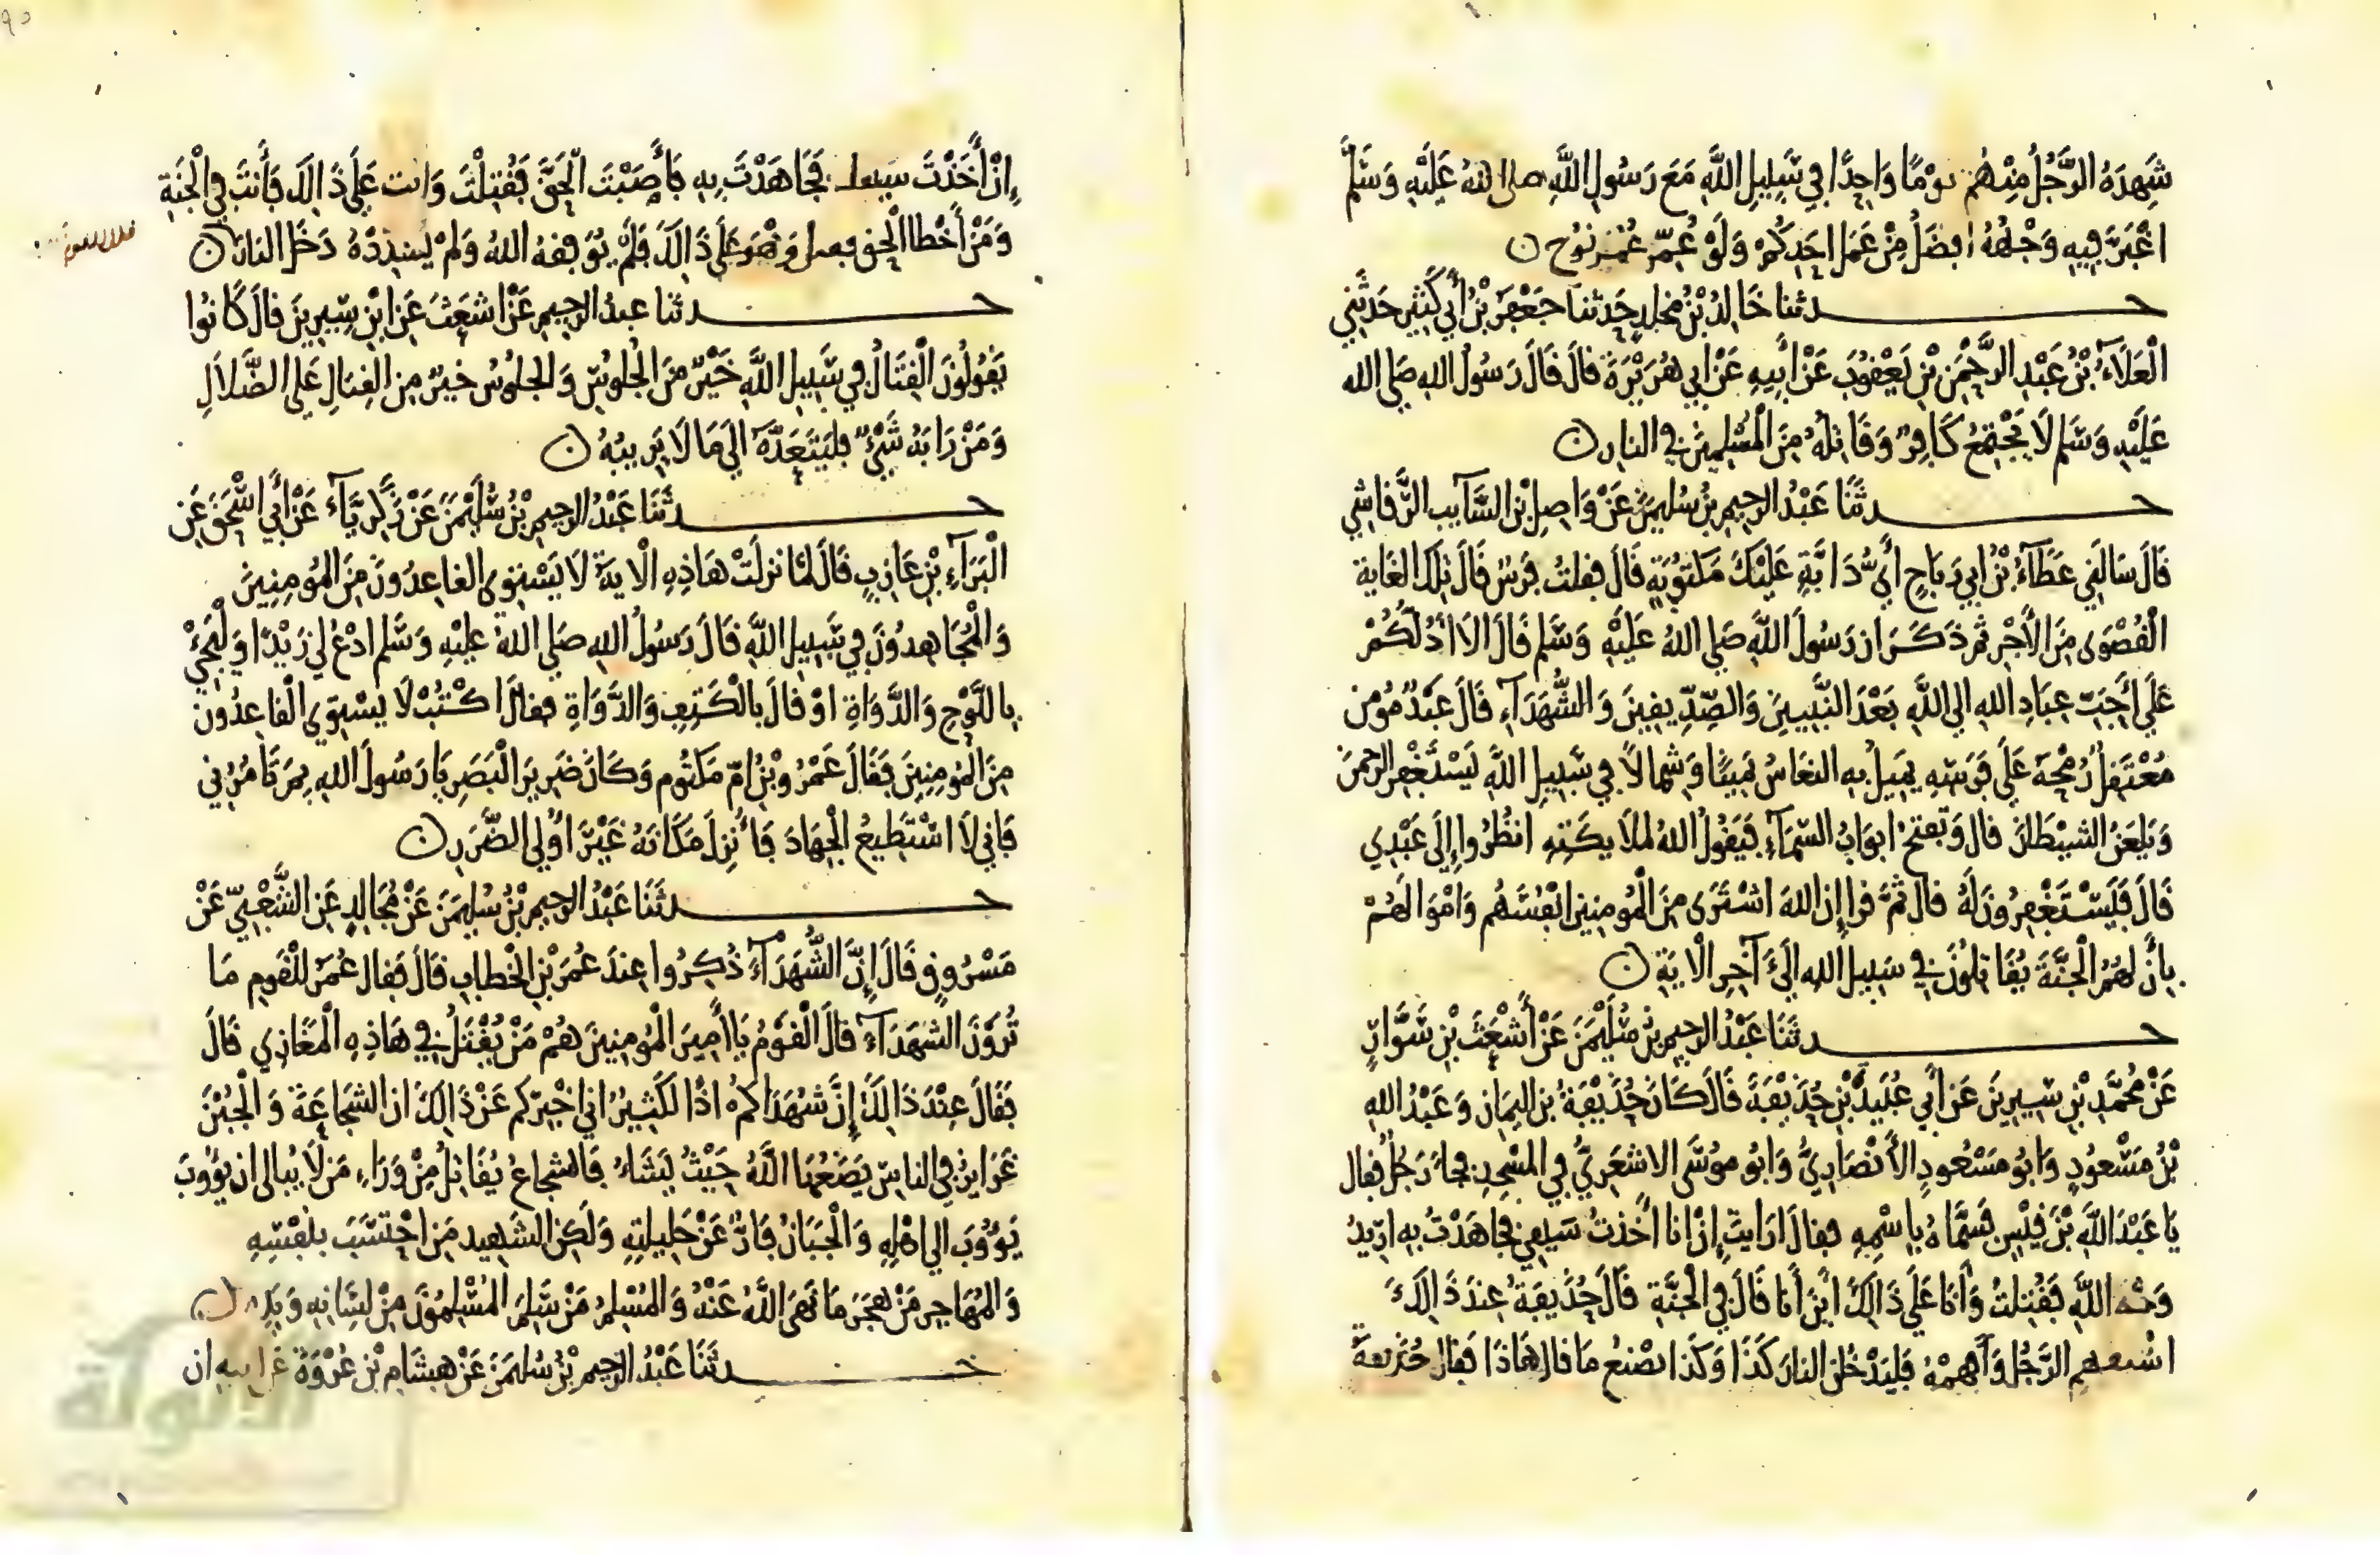 شَهِدَهُ الرَّجُلُ مِنْهُم يَوْمًا وَاحِدًا فِي سَبِيلِ اللَّهِ مَعَ رَسُولِ اللَّهِ صلى اللهُ عَلَيْهِ وَسَلَّمَ
اغْبَرَّ فِيهِ وَجْهُهُ افضَلُ مِنْ عَمَلِ احَدِكُمْ وَلَوْ عُمِّرَ عُمُرَ نُوحٍ ن
حدثنا خَالِدُ بْنُ مَخلدٍ حَدثنا جَعْفَرُ بْنُ أَبِي كَثِيرٍ حَدَّثَنِي
الْعَلَاءُ بْنُ عَبْدِ الرَّحْمَنِ بْنِ يَعْقُوبَ عَنْ أَبِيهِ عَنْ ابِي هُرَيْرَةَ قالَ قَالَ رَسُولُ الله صَلى الله
عَلَيْهِ وَسَلم لَا يَجْتَمِعُ كَافِرٌ وَقَاتِلُهُ مِنَ الْمُسْلِمِينَ فِي النار ن
حدثَنَا عَبْدُ الرحِيمِ بْنُ سُلَيْمَنَ عَنْ وَاصِلِ بْنِ السَّآيبِ الرَّقاشِي
قَالَ سَالَنِي عَطَآءُ بْنُ ابِي رَبَاحٍ أَيُّ دَابَّةٍ عَلَيْكَ مَكْتُوبَةٍ قَالَ فقلتُ فَرَسٌ قَالَ تِلْكَ الغَايةُ
الْقُصْوَى مِنَ الأَجْرِ ثم ذَكَرَ ان رَسُولَ اللَّهِ صَلى اللهُ عَلَيْهِ وَسَلم قَالَ الَا ادُلُّكُمْ
عَلَى أَحَبِّ عِبَادِ اللهِ الى اللَّهِ بَعْدَ النَّبِيِينَ وَالصِّدِّيقِينَ وَالشُّهَدَآءِ قَالَ عَبْدٌ مُومِن
مُعْتَقِلٌ رُمْحَهُ عَلَى فَرَسِهِ يَمِيلُ بِهِ النعَاسُ يَمِينًا وَشِمالاً فِي سَبِيلِ اللَّهِ يَسْتَغْفِر الرحمنَ
وَيَلعَنُ الشيْطَانَ قال وَتفتحُ ابوَابُ السَّمَآءِ فَيَقُولُ اللهُ لملَايكَتِهِ انظُرُوا إِلَى عَبْدِي
قَالَ فَيَسْتَغْفِرُونَ لَهُ قال ثُمَّ قرا إِن اللهَ اشْتَرَى مِنَ الْمُومِنِين انْفُسَهُم وَامْوَالَهُمْ
بِأَنَّ لَهُمُ الْجَنَّةَ يُقَاتِلُونَ فِي سَبِيلِ اللهِ الَى آخِرِ الْايَةِ ن
حدثَنَا عَبْدُ الرحِيمِ بْنُ سُلَيْمَنَ عَنْ أَشْعَثَ بْنِ سَوَّارٍ
عَنْ مُحَمَّدِ بْنِ سِيرِينَ عَنْ أَبِي عُبَيْدَةَ بْنِ حُذَيْفَةَ قَالَ كَانَ حُذَيْفَةُ بن اليَمَانِ وَعَبْدُ اللهِ
بْنُ مَسْعُودٍ وَابُو مَسْعُودٍ الأَنْصَارِيُّ وَابُو مُوسَى الاشعَرِيُّ فِي المَسْجِدِ فجآءَ رَجُلٌ فقال
يَا عَبْدَ اللَّهِ بْنَ قَيْسٍ فَسَمَّاهُ بِاسْمِهِ فقالَ ارَايتَ إِنْ انا أَخذتُ سَيفِي فجاهَدْتُ بِهِ ارِيدُ
وَجْهَ اللَّهِ فَقُتِلْتُ وَأَنَا عَلَى ذَالِكَ أَيْنَ أَنَا قَالَ فِي الْجَنَّةِ قَالَ حُذَيفَةُ عِنْدَ ذَالِكَ
اسْتَفهِمِ الرَّجُلَ وَأَفْهِمْهُ فَلَيَدْخُلَنَّ النارَ كَذَا وَكَذَا يَصْنعُ مَا قال هَاذَا فَقالَ حُذَيفةُ
إِنْ أَخَذْتَ سَيفك فَجَاهَدْتَ بِهِ فَأَصَبْتَ الْحَقَّ فَقُتِلْتَ وَانت عَلَى ذَالِكَ فَأَنتَ فِي الْجَنةِ
وَمَنْ أَخْطَا الْحق فقتل وَهُوَ عَلَى ذَالِكَ فَلَمْ يُوَفِّقهُ اللهُ وَلَمْ يُسَدِّدْهُ دَخَلَ النارَ ن
حدثنا عبدُ الرحِيمِ عَنْ اشعَثَ عَنْ ابْنِ سِيرِينَ قالَ كَانُوا
يَقُولُونَ الْقِتَالُ فِي سَبِيلِ اللَّهِ خَيْرٌ مِنَ الْجُلوسِ وَالجلُوسُ خيرٌ مِن القِتالِ عَلى الضَّلاَلِ
وَمَنْ رَابَهُ شَيْءٌ فليَتَعَدَّهُ الَى مَا لَا يَرِيبُهُ ن
حدثَنَا عَبْدُ الرحِيمِ بْنُ سُلَيْمَنَ عَنْ زَكَرِيَّآءَ عَنْ أَبِي اسْحَقَ عَنِ
الْبَرَآءِ بْنِ عَازِبٍ قَالَ لَمَّا نزلَتْ هَاذِهِ الْايَةُ لَا يَسْتَوِى القاعِدُونَ مِنَ المُومِنِينَ
وَالْمُجَاهِدُونَ فِي سَبِيلِ اللَّهِ قَالَ رَسُولُ اللهِ صَلى اللهُ عَلَيْهِ وَسَلم ادْعُ لِي زَيْدًا وَلْيَجِئْ
بِاللَّوْحِ وَالدَّوَاةِ اوْ قالَ بالْكَتِفِ وَالدَّوَاةِ فقالَ اكْتُبْ لَا يَسْتَوِي الْقَاعِدُونَ
مِنَ الْمُومِنِينَ فَقَالَ عَمْرُو بْنُ امِّ مَكتُوم وَكَانَ ضَرِيرَ الْبَصَرِ يَا رَسُولَ اللهِ بِمَ تَامُرُنِي
فَانِي لَا اسْتَطِيعُ الْجِهَادَ فَأُنْزِلَ مَكَانَهُ غَيْرَ اولِي الضَّرَرِ ن
حدثَنَا عَبْدُ الرحِيمِ بْنُ سُلَيْمَنَ عَنْ مُجَالِدٍ عَنِ الشَّعْبِيِّ عَنْ
مَسْرُوقٍ قَالَ إِنَّ الشُّهَدَآءَ ذُكِرُوا عِندَ عُمَرَ بْنِ الخَطابِ قَالَ فَقال عُمَرُ للْقَومِ مَا
تُرَوْنَ الشهَدَآءَ قالَ الْقَوْمُ يَا أَمِيرَ الْمُومِنِينَ هُمْ مَنْ يُقْتَلُ فِي هَاذِهِ الْمَغَازِي قَالَ
فَقَالَ عِنْدَ ذَالِكَ إِنَّ شُهَدَاكمُ اذًا لَكَثِيرٌ اني اخْبِرُكم عَنْ ذَالِكَ ان الشجَاعَةَ وَالْجُبْنَ
غَرَايِزُ فِي الناسِ يَضَعُهَا اللَّهُ حَيْثُ يَشَاءُ فَالشجاعُ يُقَاتِلُ مِنْ وَرَاءِ مَن لَا يُبالى ان يؤوبَ
يَؤُوبَ الى اهْلِهِ وَالْجَبَانُ فَارٌّ عَنْ حَلِيلَتِهِ وَلَكِن الشَهِيد مَن احْتَسَبَ بنَفْسِهِ
وَالْمُهَاجِر مَنْ هَجَرَ مَا نَهَى اللَّهُ عَنْهُ وَالمُسْلِمُ مَنْ سَلِمَ الْمُسْلِمُونَ مِنْ لِسَانِهِ وَيَدِهِ ن
حدثَنَا عَبْدُ الرحِيمِ بْنُ سُلَيْمَنَ عَنْ هِشَامِ بْنِ عُرْوَةَ عَن ابيه ان
الألوكة